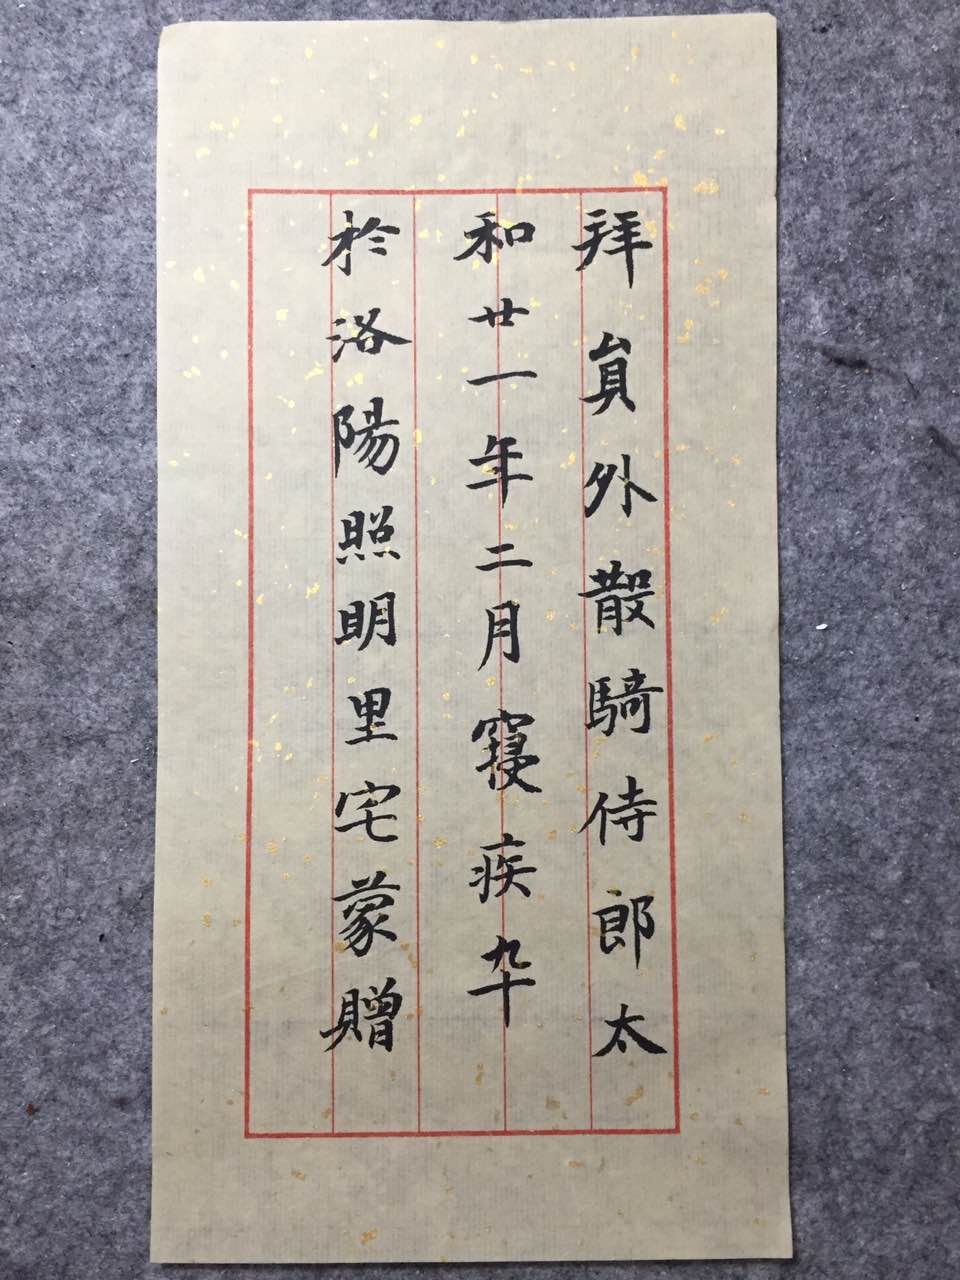 拜員外散騎侍郎太
和廿一年二月寑疾卆
於洛陽照明里宅蒙贈